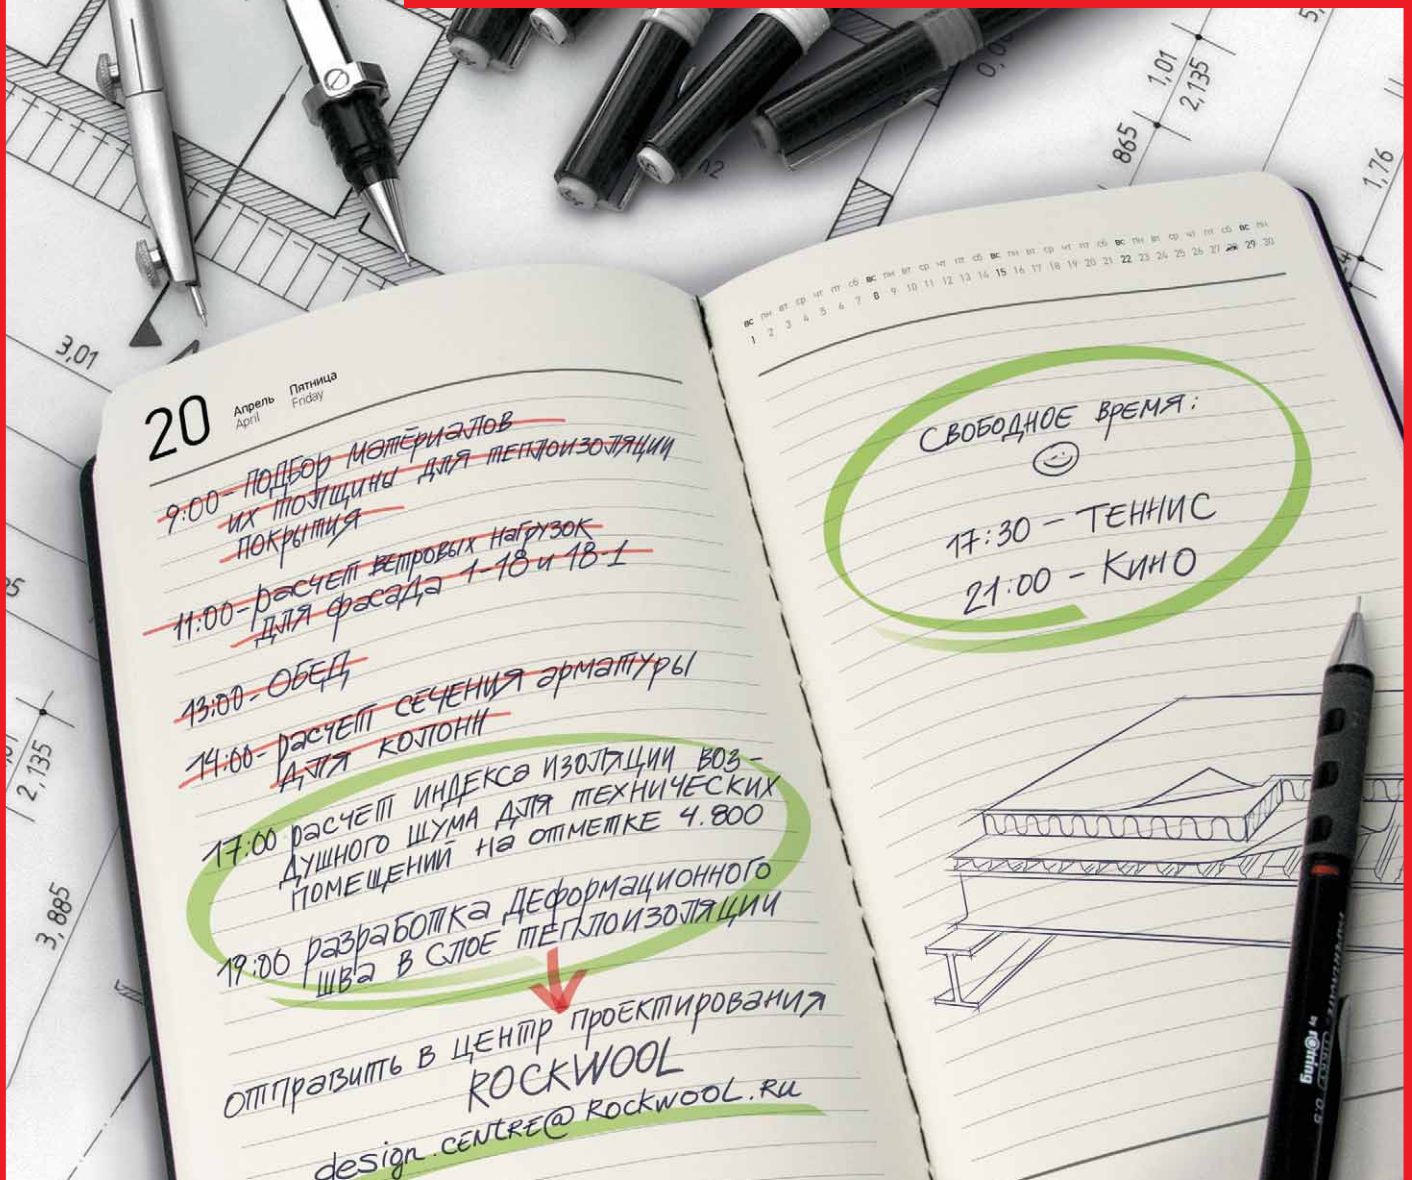 20
Апрель Пятница
April Friday
9:00 - подбор материалов
их толщины для теплоизоляции
покрытия
11:00 - расчет ветровых нагрузок
для фасада 1-18 и 18-1
13:00 - ОБЕД
14:00 - расчет сечения арматуры
для колонн
17:00 расчет индекса изоляции воз-
душного шума для технических
помещений на отметке 4.800
19:00 разработка деформационного
шва в слое теплоизоляции
отправить в центр проектирования
ROCKWOOL
design.centre@rockwool.ru
вс пн вт ср чт пт сб вс пн вт ср чт пт сб вс пн вт ср чт пт сб вс пн вт ср чт пт сб вс пн
1 2 3 4 5 6 7 8 9 10 11 12 13 14 15 16 17 18 19 20 21 22 23 24 25 26 27 29 30
СВОБОДНОЕ ВРЕМЯ:
17:30 - ТЕННИС
21:00 - КИНО
3,01
2,135
3,885
1,01
2,135
865
1,76
by rotring
0.5